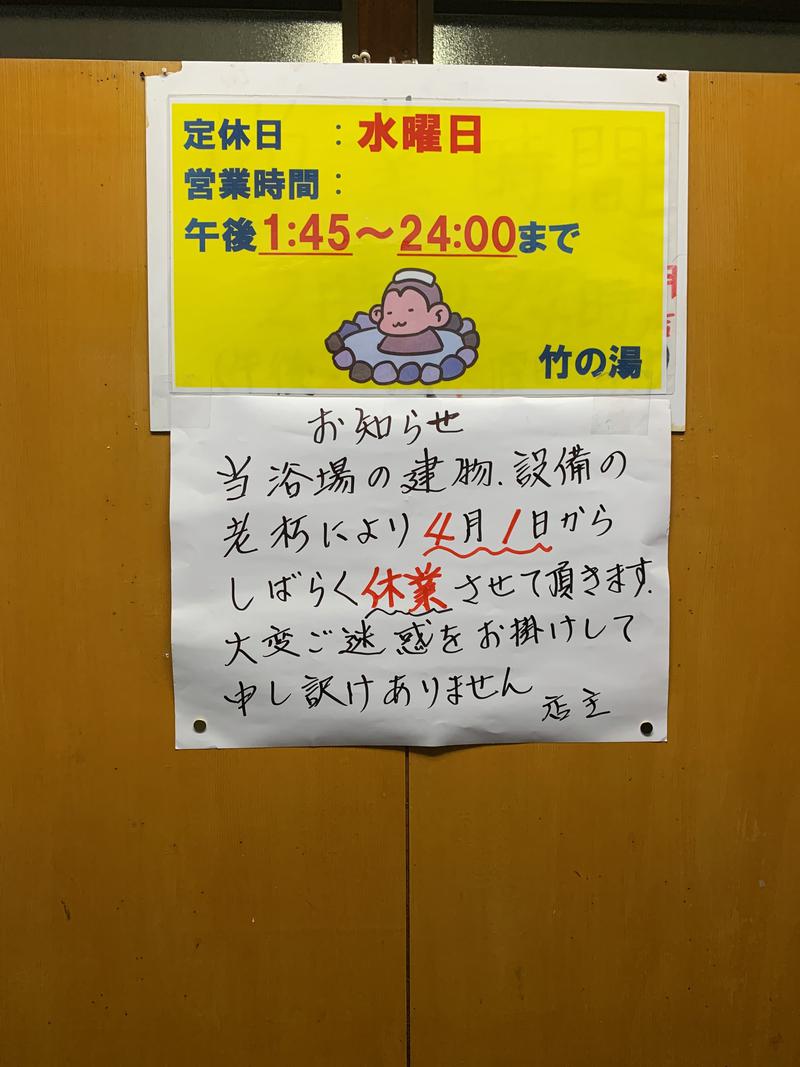 定休日　：水曜日
営業時間：
午後1:45～24:00まで
竹の湯
お知らせ
当浴場の建物、設備の
老朽により4月1日から
しばらく休業させて頂きます.
大変ご迷惑をお掛けして
申し訳けありません
店主